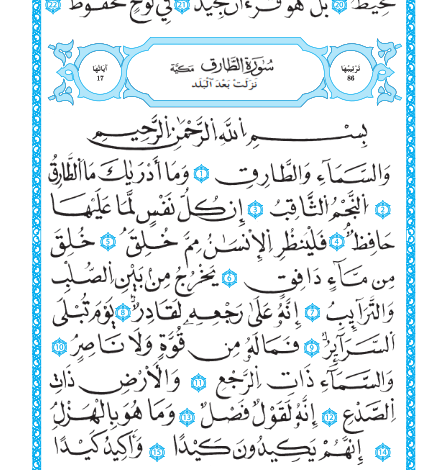 مُّحِيطٌ ⑳ بَلْ هُوَ قُرْءَانٌ مَّجِيدٌ ㉑ فِي لَوْحٍ مَّحْفُوظٍ ㉒
ترتيبها 86 سُورَةُ الطَّارِقِ مَكِّيَّة آياتها 17
نَزَلَتْ بَعْدَ الْبَلَد
بِسْمِ اللَّهِ الرَّحْمَٰنِ الرَّحِيمِ
وَالسَّمَاءِ وَالطَّارِقِ ① وَمَا أَدْرَىٰكَ مَا الطَّارِقُ
② النَّجْمُ الثَّاقِبُ ③ إِن كُلُّ نَفْسٍ لَّمَا عَلَيْهَا
حَافِظٌ ④ فَلْيَنظُرِ الْإِنسَٰنُ مِمَّ خُلِقَ ⑤ خُلِقَ
مِن مَّاءٍ دَافِقٍ ⑥ يَخْرُجُ مِنْ بَيْنِ الصُّلْبِ
وَالتَّرَائِبِ ⑦ إِنَّهُ عَلَىٰ رَجْعِهِ لَقَادِرٌ ⑧ يَوْمَ تُبْلَى
السَّرَائِرُ ⑨ فَمَا لَهُ مِن قُوَّةٍ وَلَا نَاصِرٍ ⑩
وَالسَّمَاءِ ذَاتِ الرَّجْعِ ⑪ وَالْأَرْضِ ذَاتِ
الصَّدْعِ ⑫ إِنَّهُ لَقَوْلٌ فَصْلٌ ⑬ وَمَا هُوَ بِالْهَزْلِ
⑭ إِنَّهُمْ يَكِيدُونَ كَيْدًا ⑮ وَأَكِيدُ كَيْدًا